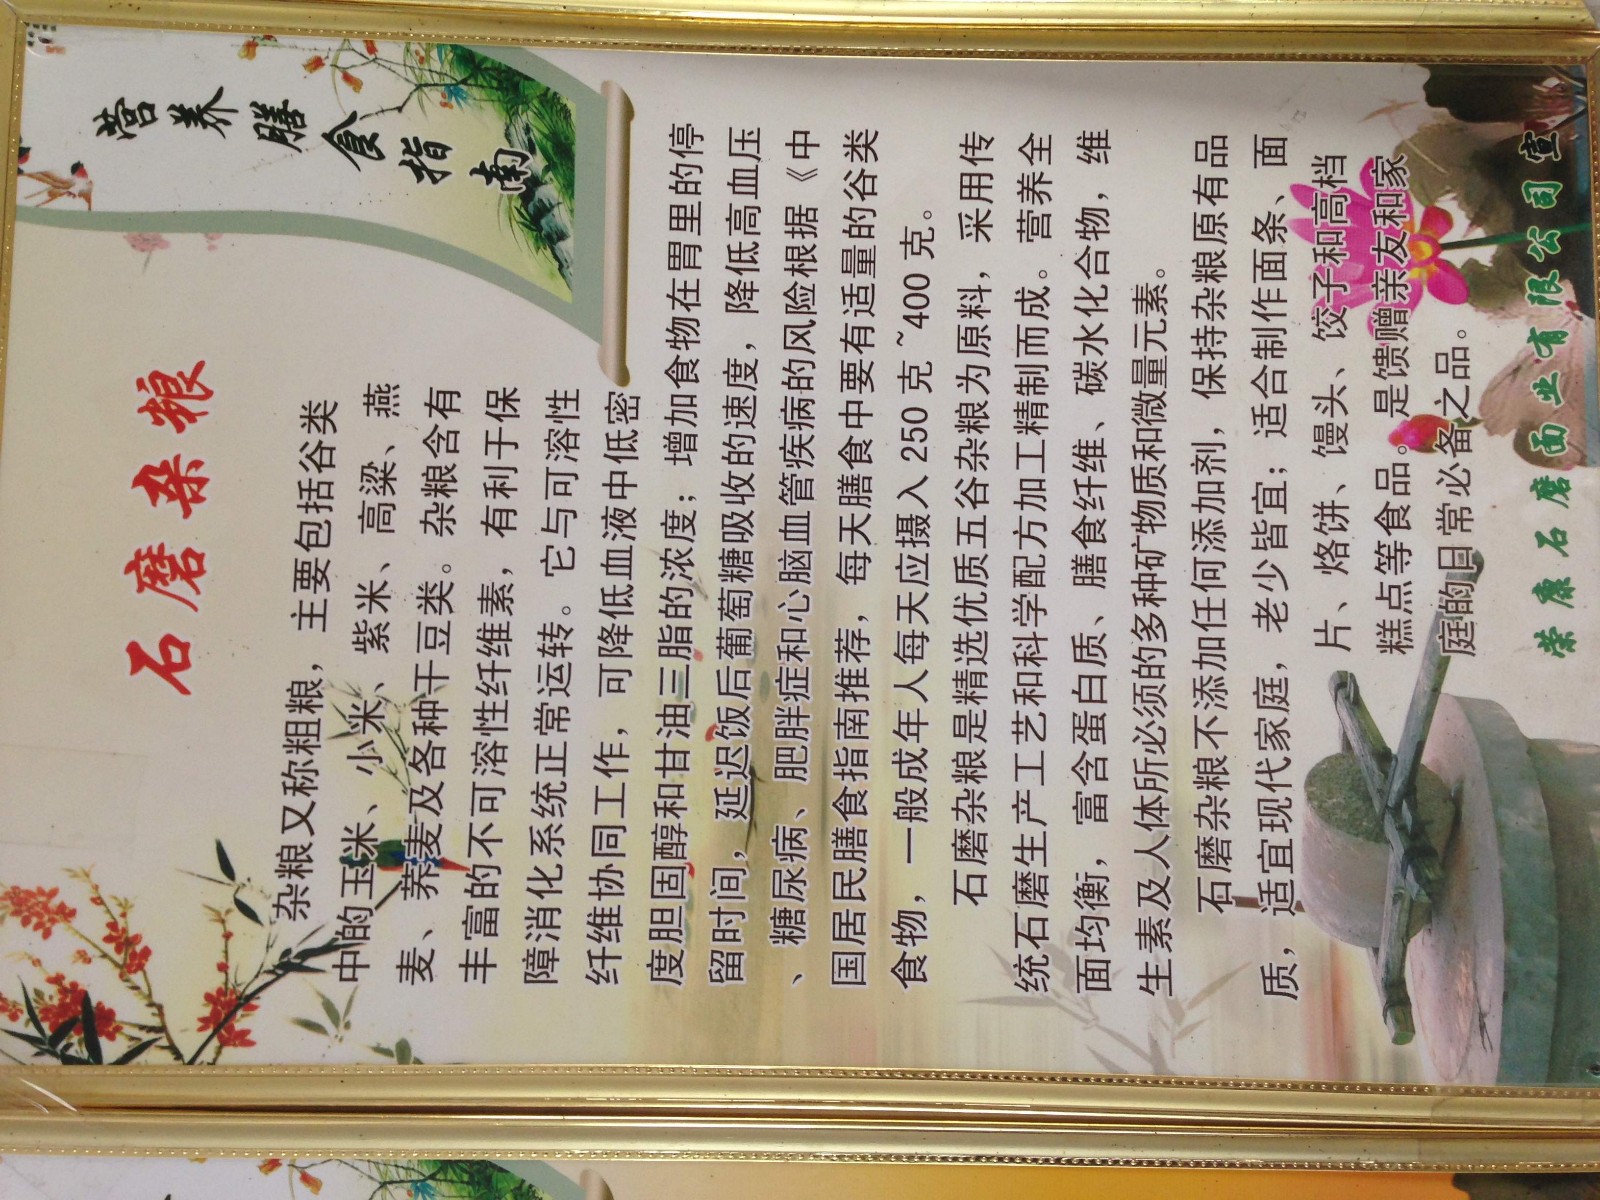 石磨杂粮
营养膳食指南
杂粮又称粗粮，主要包括谷类
中的玉米、小米、紫米、高粱、燕
麦、荞麦及各种干豆类。杂粮含有
丰富的不可溶性纤维素，有利于保
障消化系统正常运转。它与可溶性
纤维协同工作，可降低血液中低密
度胆固醇和甘油三脂的浓度；增加食物在胃里的停
留时间，延迟饭后葡萄糖吸收的速度，降低高血压
、糖尿病、肥胖症和心脑血管疾病的风险根据《中
国居民膳食指南推荐，每天膳食中要有适量的谷类
食物，一般成年人每天应摄入 250 克~400 克。
石磨杂粮是精选优质五谷杂粮为原料，采用传
统石磨生产工艺和科学配方加工精制而成。营养全
面均衡，富含蛋白质、膳食纤维、碳水化合物，维
生素及人体所必须的多种矿物质和微量元素。
石磨杂粮不添加任何添加剂，保持杂粮原有品
质，适宜现代家庭，老少皆宜；适合制作面条、面
片、烙饼、馒头、饺子和高档
糕点等食品。是馈赠亲友和家
庭的日常必备之品。
荣康石磨面业有限公司宣